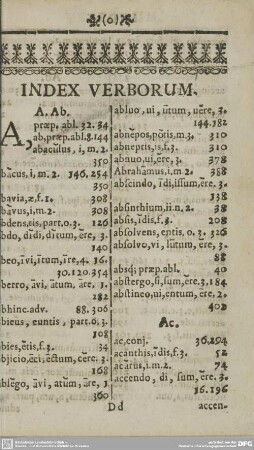 (o)
INDEX VERBORUM.
A. Ab.
A, præp. abl. 32. 34
ab, præp. abl. 8. 144
abaculus, i, m. 2.
350
băcus, i. m. 2. 146. 254
350
bavia, æ, f. 1. 308
bāvus, i. m. 2. 308
bdens, tis, part. o. 3. 126
bdo, dĭdi, dĭtum, ĕre, 3.
140
beo, īvi, ĭtum, īre, 4. 16.
30. 120. 354
berro, āvi, ātum, āre, 1.
182
bhinc. adv. 88. 306
bieus, euntis, part. o. 3.
108
bies, ĕtis, f. 3. 34
bjicio, ēci, ectum, cĕre. 3.
168
blĕgo, āvi, ātum, āre, 1.
360
abluo, ui, ūtum, uĕre, 3.
144. 182
abnĕpos, pōtis, m. 3, 310
abneptis, is, f. 3. 310
abnuo, ui, ĕre, 3. 378
Abrahāmus, i. m. 2. 388
abscindo, ĭdi, issum, ĕre, 3.
138
absinthium, ii. n. 2. 38
absis, ĭdis, f. 3. 208
absolvens, entis. o. 3. 326
absolvo, vi, lūtum, ĕre, 3.
88
absq; præp. abl. 40
abstergo, si, sum, ĕre. 3. 184
abstineo, ui, entum, ēre. 2.
402
Ac.
ac, conj. 36. 294
acānthis, ĭdis, f. 3. 52
acărus, i. m. 2. 74
accendo, di, sum, ĕre, 3.
16. 196
Dd accen.